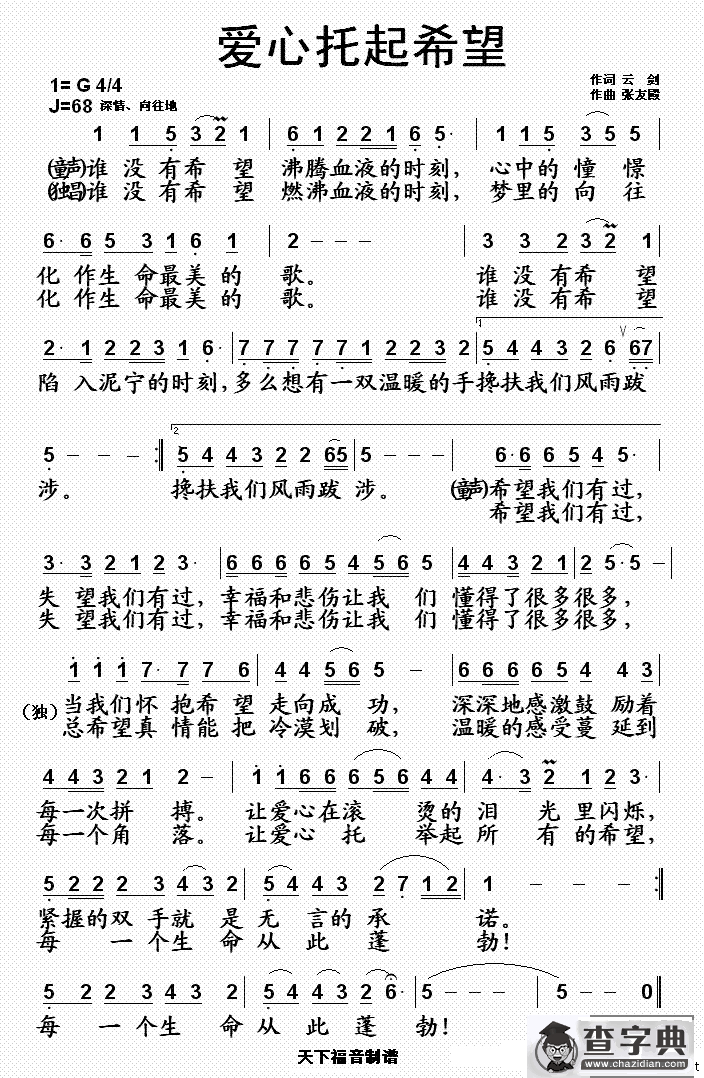 爱心托起希望
1= G 4/4
作词 云 剑
J=68 深情、向往地
作曲 张友殿
1 1 5 3 2 1 | 6 1 2 2 2 1 6 5· | 1 1 5 3 5 5
(童声)谁 没 有 希 望 沸腾血液的时刻, 心中的 憧 憬
(独唱)谁 没 有 希 望 燃沸血液的时刻, 梦里的 向 往
6· 6 5 3 1 6 1 | 2 - - - | 3 3 2 3 2 1
化 作生 命最美 的 歌。 谁 没 有希 望
化 作生 命最美 的 歌。 谁 没 有希 望
2· 1 2 2 2 1 6· | 7 7 7 7 1 2 2 3 2 | 5 4 4 3 2 6 67
陷 入泥宁的时刻,多么想有一双温暖的手搀扶我们风雨跋
5 - - - :| 5 4 4 3 2 2 65 | 5 - - - | 6· 6 6 5 4 5·
涉。 搀扶我们风雨跋 涉。 (童声)希望我们有过,
希望我们有过,
3· 3 2 1 2 3· | 6 6 6 6 5 4 5 6 5 | 4 4 3 2 1 | 2 5· 5 -
失 望我们有过, 幸福和悲伤让我 们 懂得了很多很多,
失 望我们有过, 幸福和悲伤让我 们 懂得了很多很多,
1 1 1 7· 7 7 6 | 4 4 5 6 5 - | 6 6 6 6 5 4 4 3
当我们怀 抱希 望 走向成 功, 深深地感激鼓 励着
(独)
总希望真 情能 把 冷漠划 破, 温暖的感受蔓 延到
4 4 3 2 1 2 - | 1 1 6 6 6 5 6 5 4 | 4· 3 2 1 2 3
每一次拼 搏。 让爱心在滚 烫的 泪 光 里闪烁,
每一个角 落。 让爱心 托 举起 所 有 的希望,
5 2 2 2 3 4 3 2 | 5 4 3 4 2 7 1 2 | 1 - - - :|
紧握的双 手就 是 无 言的 承 诺。
每 一 个生 命 从 此 蓬 勃!
5 2 2 2 3 4 3 2 | 5 4 3 4 2 6· | 5 - - - | 5 - - 0 ‖
每 一 个生 命 从 此 蓬 勃!
天下福音制谱
查字典
www.chazidian.com
t